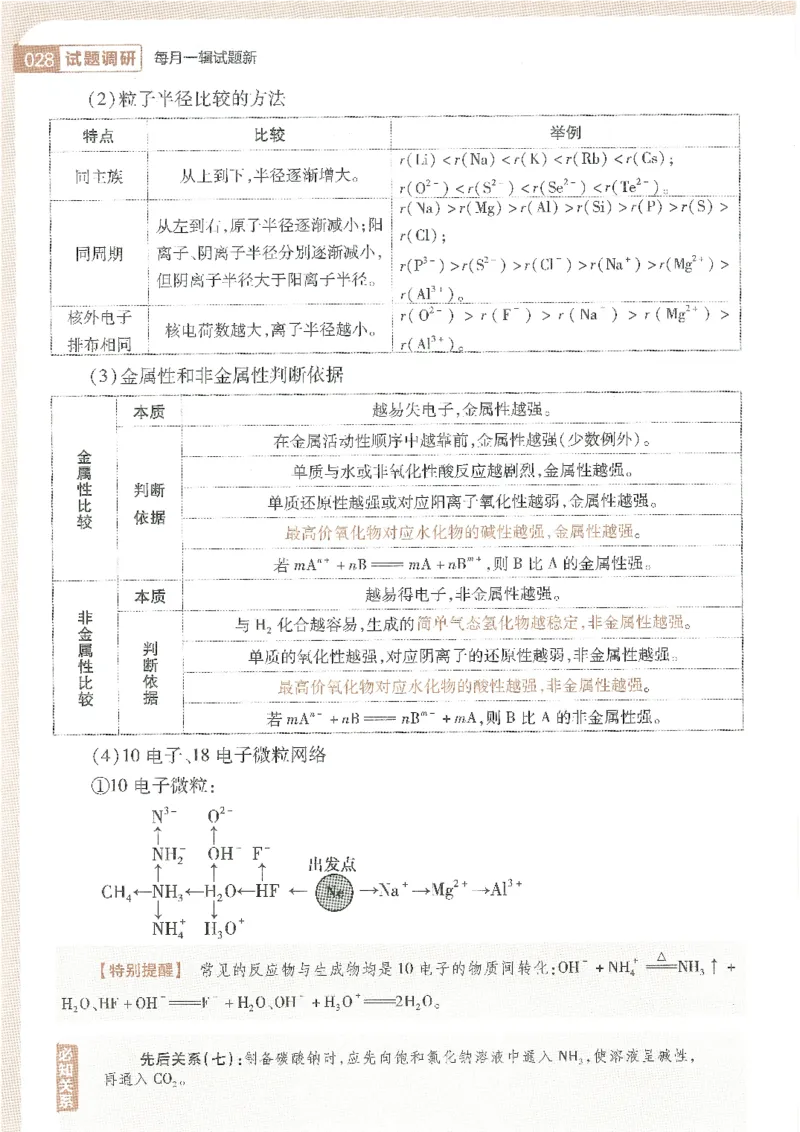 028 试题调研 每月一辑试题新
(2)粒子半径比较的方法
特点 比较 举例
同主族 从上到下,半径逐渐增大。 r(Li)<r(Na)<r(K)<r(Rb)<r(Cs);
r(O²⁻)<r(S²⁻)<r(Se²⁻)<r(Te²⁻)。
同周期 从左到右,原子半径逐渐减小;阳
离子、阴离子半径分别逐渐减小,
但阴离子半径大于阳离子半径。
r(Na)>r(Mg)>r(Al)>r(Si)>r(P)>r(S)>
r(Cl);
r(P³⁻)>r(S²⁻)>r(Cl⁻)>r(Na⁺)>r(Mg²⁺)>
r(Al³⁺)。
核外电子
排布相同
核电荷数越大,离子半径越小。
r(O²⁻)>r(F⁻)>r(Na⁺)>r(Mg²⁺)>
r(Al³⁺)。
(3)金属性和非金属性判断依据
金属性比较
本质 越易失电子,金属性越强。
判断
依据
在金属活动性顺序中越靠前,金属性越强(少数例外)。
单质与水或非氧化性酸反应越剧烈,金属性越强。
单质还原性越强或对应阳离子氧化性越弱,金属性越强。
最高价氧化物对应水化物的碱性越强,金属性越强。
若mAⁿ⁺+nB══mA+nBᵐ⁺,则B比A的金属性强。
非金属性比较
本质 越易得电子,非金属性越强。
判断依据
与H₂化合越容易,生成的简单气态氢化物越稳定,非金属性越强。
单质的氧化性越强,对应阴离子的还原性越弱,非金属性越强。
最高价氧化物对应水化物的酸性越强,非金属性越强。
若mAⁿ⁻+nB══nBᵐ⁻+mA,则B比A的非金属性强。
(4)10电子、18电子微粒网络
①10电子微粒:
N³⁻ O²⁻
↑ ↑
NH₂⁻ OH⁻ F⁻
↑ ↑ ↑ 出发点
CH₄←NH₃←H₂O←HF ← Ne →Na⁺→Mg²⁺→Al³⁺
↓ ↓
NH₄⁺ H₃O⁺
【特别提醒】 常见的反应物与生成物均是10电子的物质间转化:OH⁻+NH₄⁺ ══△ NH₃↑+
H₂O、HF+OH⁻══F⁻+H₂O、OH⁻+H₃O⁺══2H₂O。
必知关系
先后关系(七):制备碳酸钠时,应先向饱和氯化钠溶液中通入NH₃,使溶液呈碱性,
再通入CO₂。